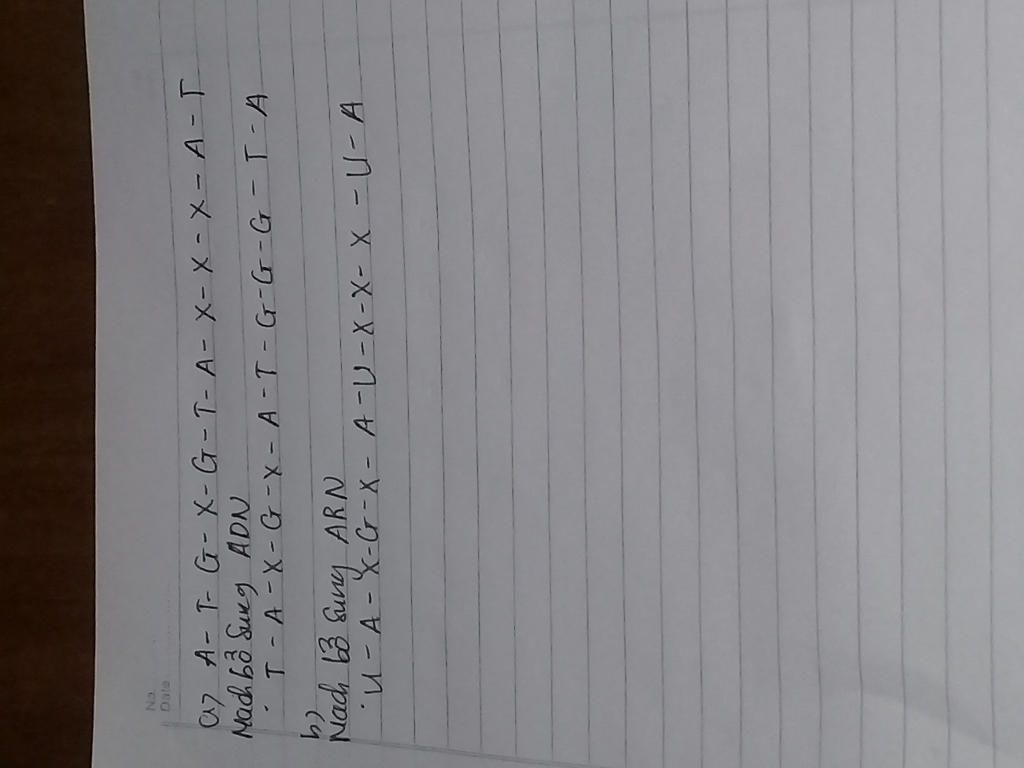 No.
Date
a) A - T - G - X - G - T - A - X - X - X - A - T
Mạch bổ sung ADN
· T - A - X - G - X - A - T - G - G - G - T - A
b)
Mạch bổ sung ARN
· U - A - X - G - X - A - U - X - X - X - U - A